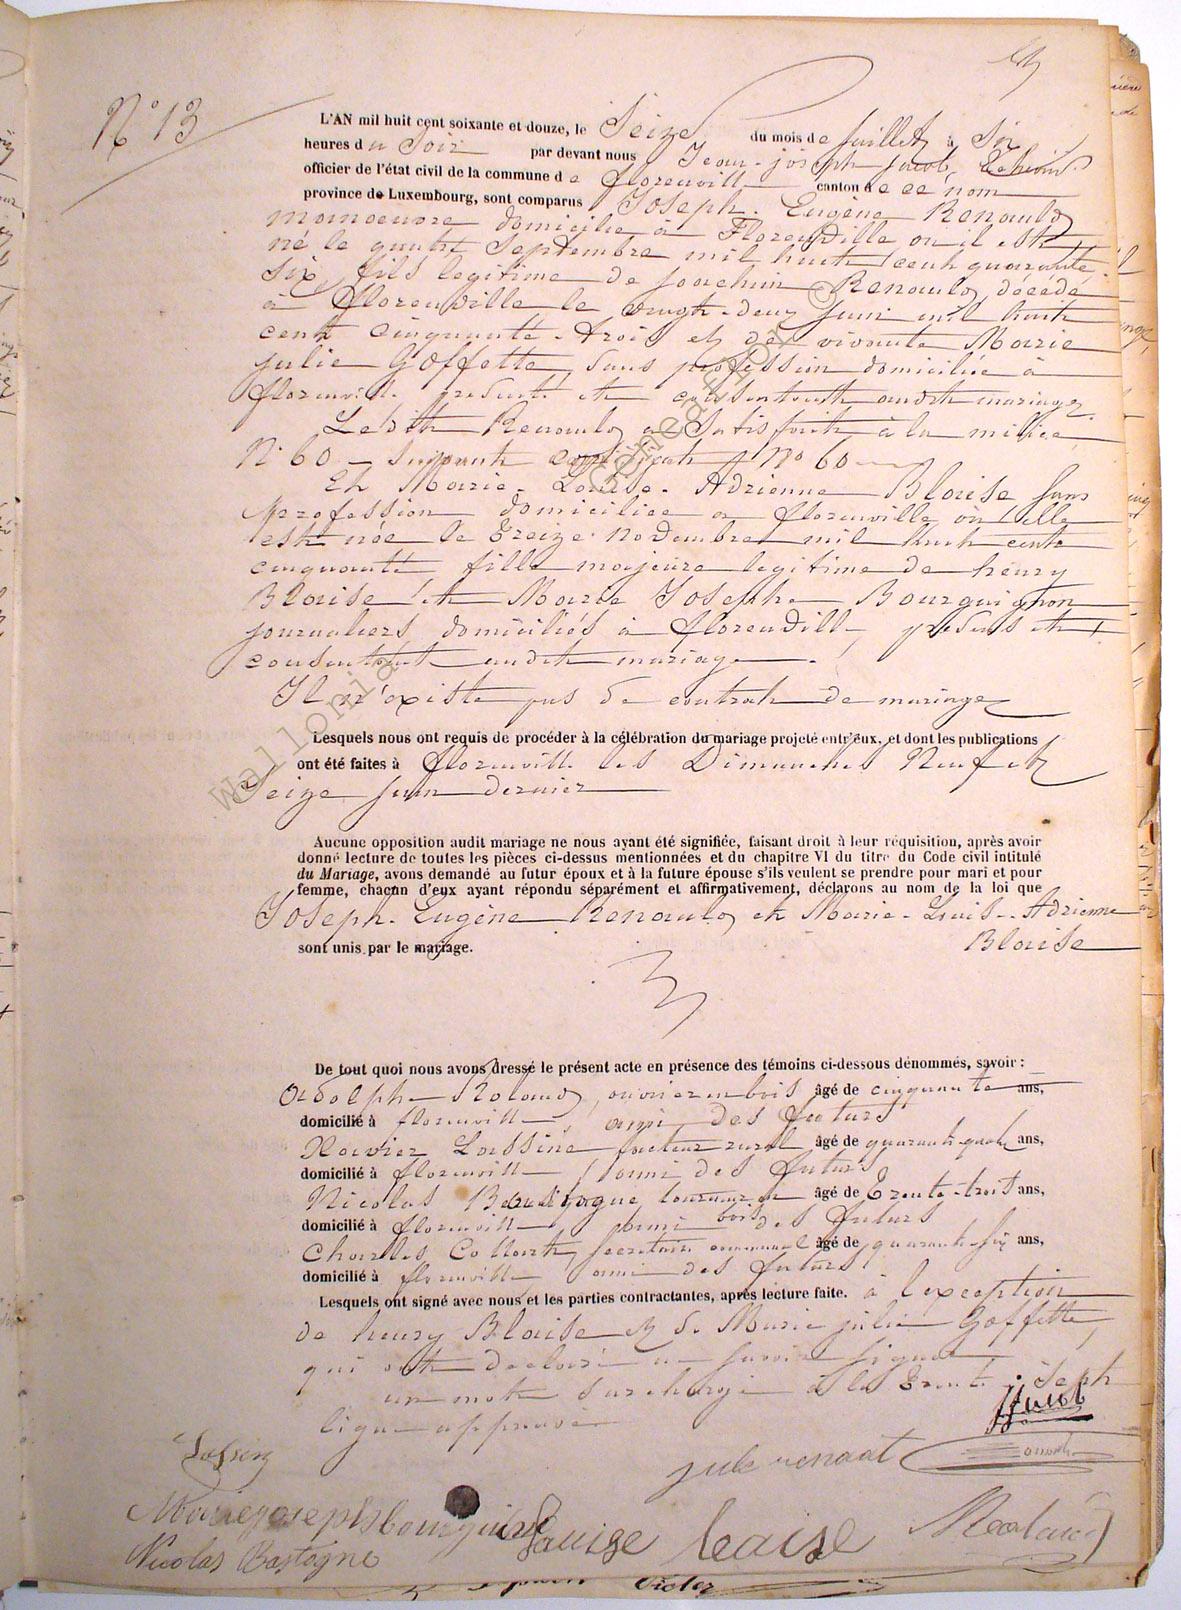 N° 13
L'AN mil huit cent soixante et douze, le Seize du mois de Juillet à Six
heures du Soir par devant nous Jean-joseph Jacob, Echevin
officier de l'état civil de la commune de florenville canton de ce nom
province de Luxembourg, sont comparus Joseph-Eugène Renauld
manoeuvre domicilié à Florenville où il est
né le quatre Septembre mil huit cent quarante
six, fils légitime de joachim Renauld, décédé
à florenville le vingt-deux juin mil huit
cent cinquante-trois et de vivante Marie
julie Goffette, sans profession domiciliée à
florenville présente et consentante audit mariage
Ledit Renauld a Satisfait à la milice
N° 60 - Suivant certificat N° 60
Et Marie-Louise-Adrienne Blaise Sans
profession domiciliée à florenville où elle
est née le treize Novembre mil huit cent
cinquante fille majeure légitime de henry
Blaise et Marie Josephe Bourguignon
journaliers, domiciliés à florenville, présents et
consentant audit mariage.
Il n'existe pas de contrat de mariage
Lesquels nous ont requis de procéder à la célébration du mariage projeté entr'eux, et dont les publications
ont été faites à florenville les Dimanches Neuf et
Seize juin dernier
Aucune opposition audit mariage ne nous ayant été signifiée, faisant droit à leur réquisition, après avoir
donné lecture de toutes les pièces ci-dessus mentionnées et du chapitre VI du titre du Code civil intitulé
du Mariage, avons demandé au futur époux et à la future épouse s'ils veulent se prendre pour mari et pour
femme, chacun d'eux ayant répondu séparément et affirmativement, déclarons au nom de la loi que
Joseph-Eugène Renauld et Marie-Louis-Adrienne
Blaise
sont unis par le mariage.
De tout quoi nous avons dressé le présent acte en présence des témoins ci-dessous dénommés, savoir :
Adolphe Roland, ouvrier en bois âgé de cinquante ans,
domicilié à florenville, ami des futurs
Xavier Lassine facteur rural âgé de quarante-quatre ans,
domicilié à florenville, ami des futurs
Nicolas Bastogne tourneur en âgé de trente-trois ans,
bois
domicilié à florenville, ami des futurs
Charles Collart, secrétaire communal âgé de quarante-six ans,
domicilié à florenville ami des futurs
Lesquels ont signé avec nous et les parties contractantes, après lecture faite. à l'exception
de henry Blaise et de Marie julie Goffette,
qui ont déclaré ne savoir signer
un mot surchargé à la trente-sept
ligne approuvé
JJacob
Lassine
jule renaat
Marie joseph bourguino
Louise leaise
Nicolas Bastogne
Wallonia Généalogie ©